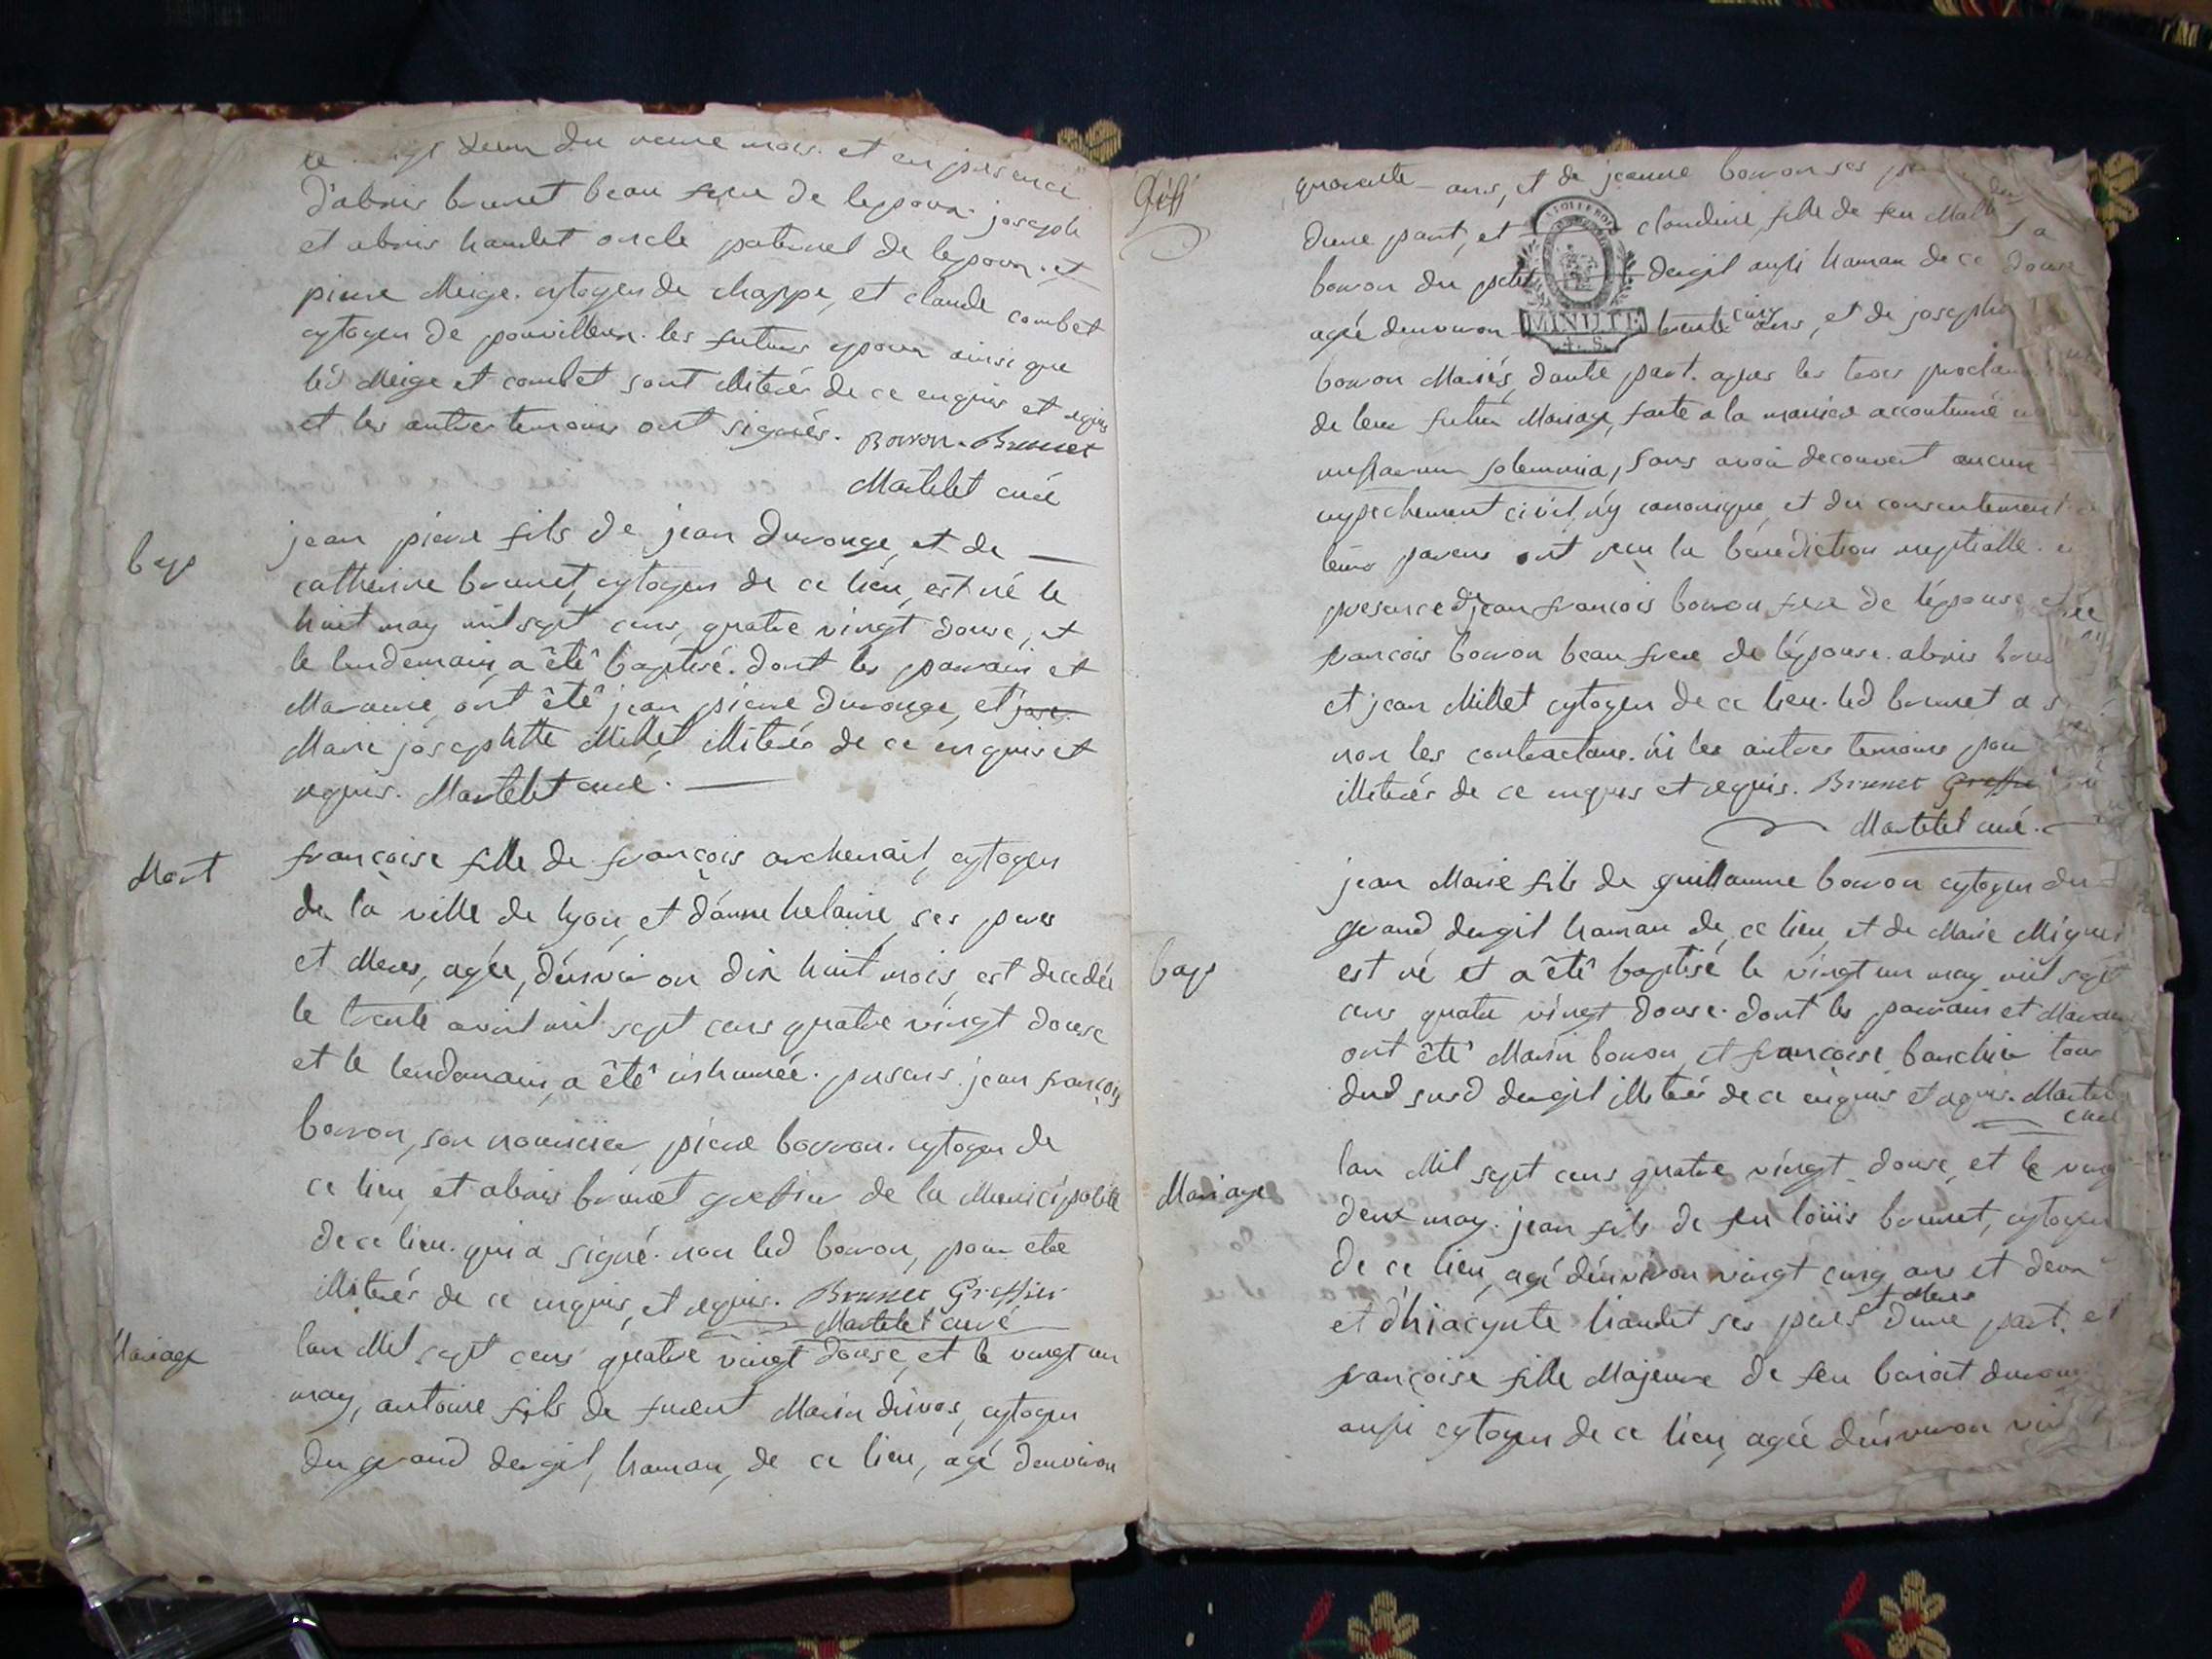 du meme mois. et en presence
d'abris brunet beau frere de lepoux. joseph
et abris haudet oncle paternel de lepoux. et
pierre Meige. cytoyen de chappe, et claude combet
cytoyen de ponvilleux. les futurs epoux ainsi que
led Meige et combet sont illiterés de ce enquis et requis
et les autres temoins ont signés. Bovon. Brunet
Martelet curé
bap
jean pierre fils de jean durouge, et de
catherine brunet, cytoyen de ce lieu, est né le
huit may mil sept cens, quatre vingt douse, et
le lendemain, a été baptisé. dont les parain et
Maraine, ont été jean pierre durouge, et jose
Marie josephtte Millet illiterés de ce enquis et
requis. Martelet curé.
Mort
françoise fille de françois archenait, cytoyen
de la ville de lyon, et d'anne helaine, ses peres
et Meres, agée, d'environ dix huit mois, est decedée
le trente avril mil sept cens quatre vingt douse
et le lendemain, a été inhumée. presens. jean françois
bovon, son nouricier, pierre bovon. cytoyen de
ce lieu, et abris brunet greffier de la Municipalité
de ce lieu. qui a signé. non led bovon, pour etre
illiterés de ce enquis, et requis. Brunet Greffier
Martelet curé
Mariage
lan Mil sept cens quatre vingt douse, et le vingt un
may, antoine fils de furent Marin drivos, cytoyen
du grand dergil, hamau, de ce lieu, agé denviron
quarente ans, et de jeanne bovon ses
dune part, et claudine, fille de feu
bovon du petit dergil aussi hamau de ce
agée denviron trente cinq ans, et de josephe
bovon Mariés, daute part. apres les trois
de leur futur Mariage, faite a la maniere accoutumé
solemnia, sans avoir decouvert aucun
empechement civil, ny canonique, et du consentement
leurs parens ont reçu la bénediction nuptialle.
presence de jean francois bovon frere de l'epouse
francois bovon beau frere de l'epouse. abris
et jean Millet cytoyen de ce lieu. led brunet a
non les contractans. ni les autres temoins pour
illiterés de ce enquis et requis. Brunet
Martelet curé.
bap
jean Marie fils de guillaume bovon cytoyen du
grand dergil hamau de ce lieu, et de Marie
est né et a été baptisé le vingt un may mil sept
cens quatre vingt douse. dont les parain et
ont été Marin bovon, et françoise
dud susd dergil illiterés de ce enquis et requis.
curé
Mariage
lan Mil sept cens quatre vingt douse, et le
deux may. jean fils de feu louis brunet, cytoyen
de ce lieu, agé d'environ vingt cinq ans et
et d'hiacynte haudet ses peres et Meres dune part. et
françoise fille Majeure de feu
aussi cytoyen de ce lieu, agée d'environ
MINUTE
4. S.